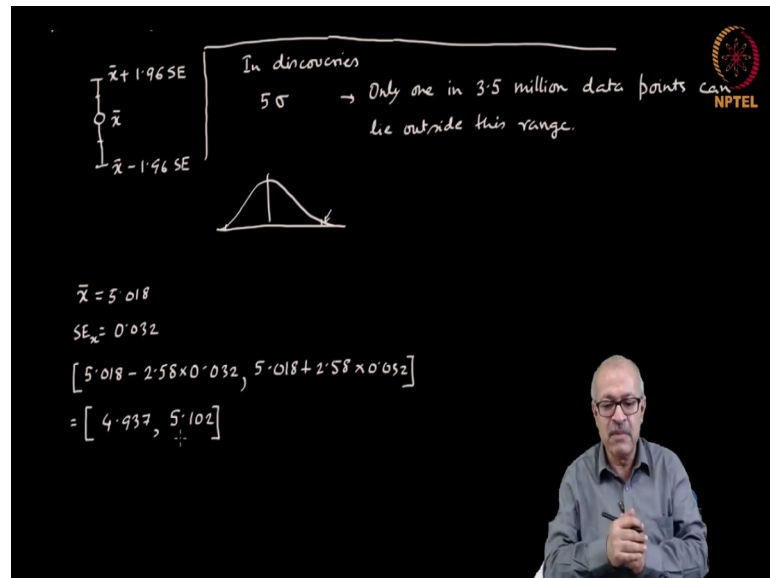 x̄ + 1·96 SE
x̄
x̄ - 1·96 SE
In discoveries
5σ → Only one in 3·5 million data points can
lie outside this range.
NPTEL
x̄ = 5·018
SEₓ = 0·032
[5·018 - 2·58 × 0·032, 5·018 + 2·58 × 0·032]
= [4·937, 5·102]